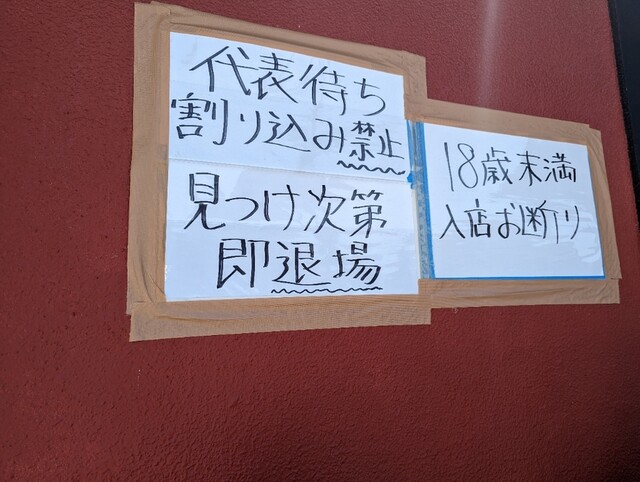 代表待ち
割り込み禁止
見つけ次第
即退場
18歳末満
入店お断り